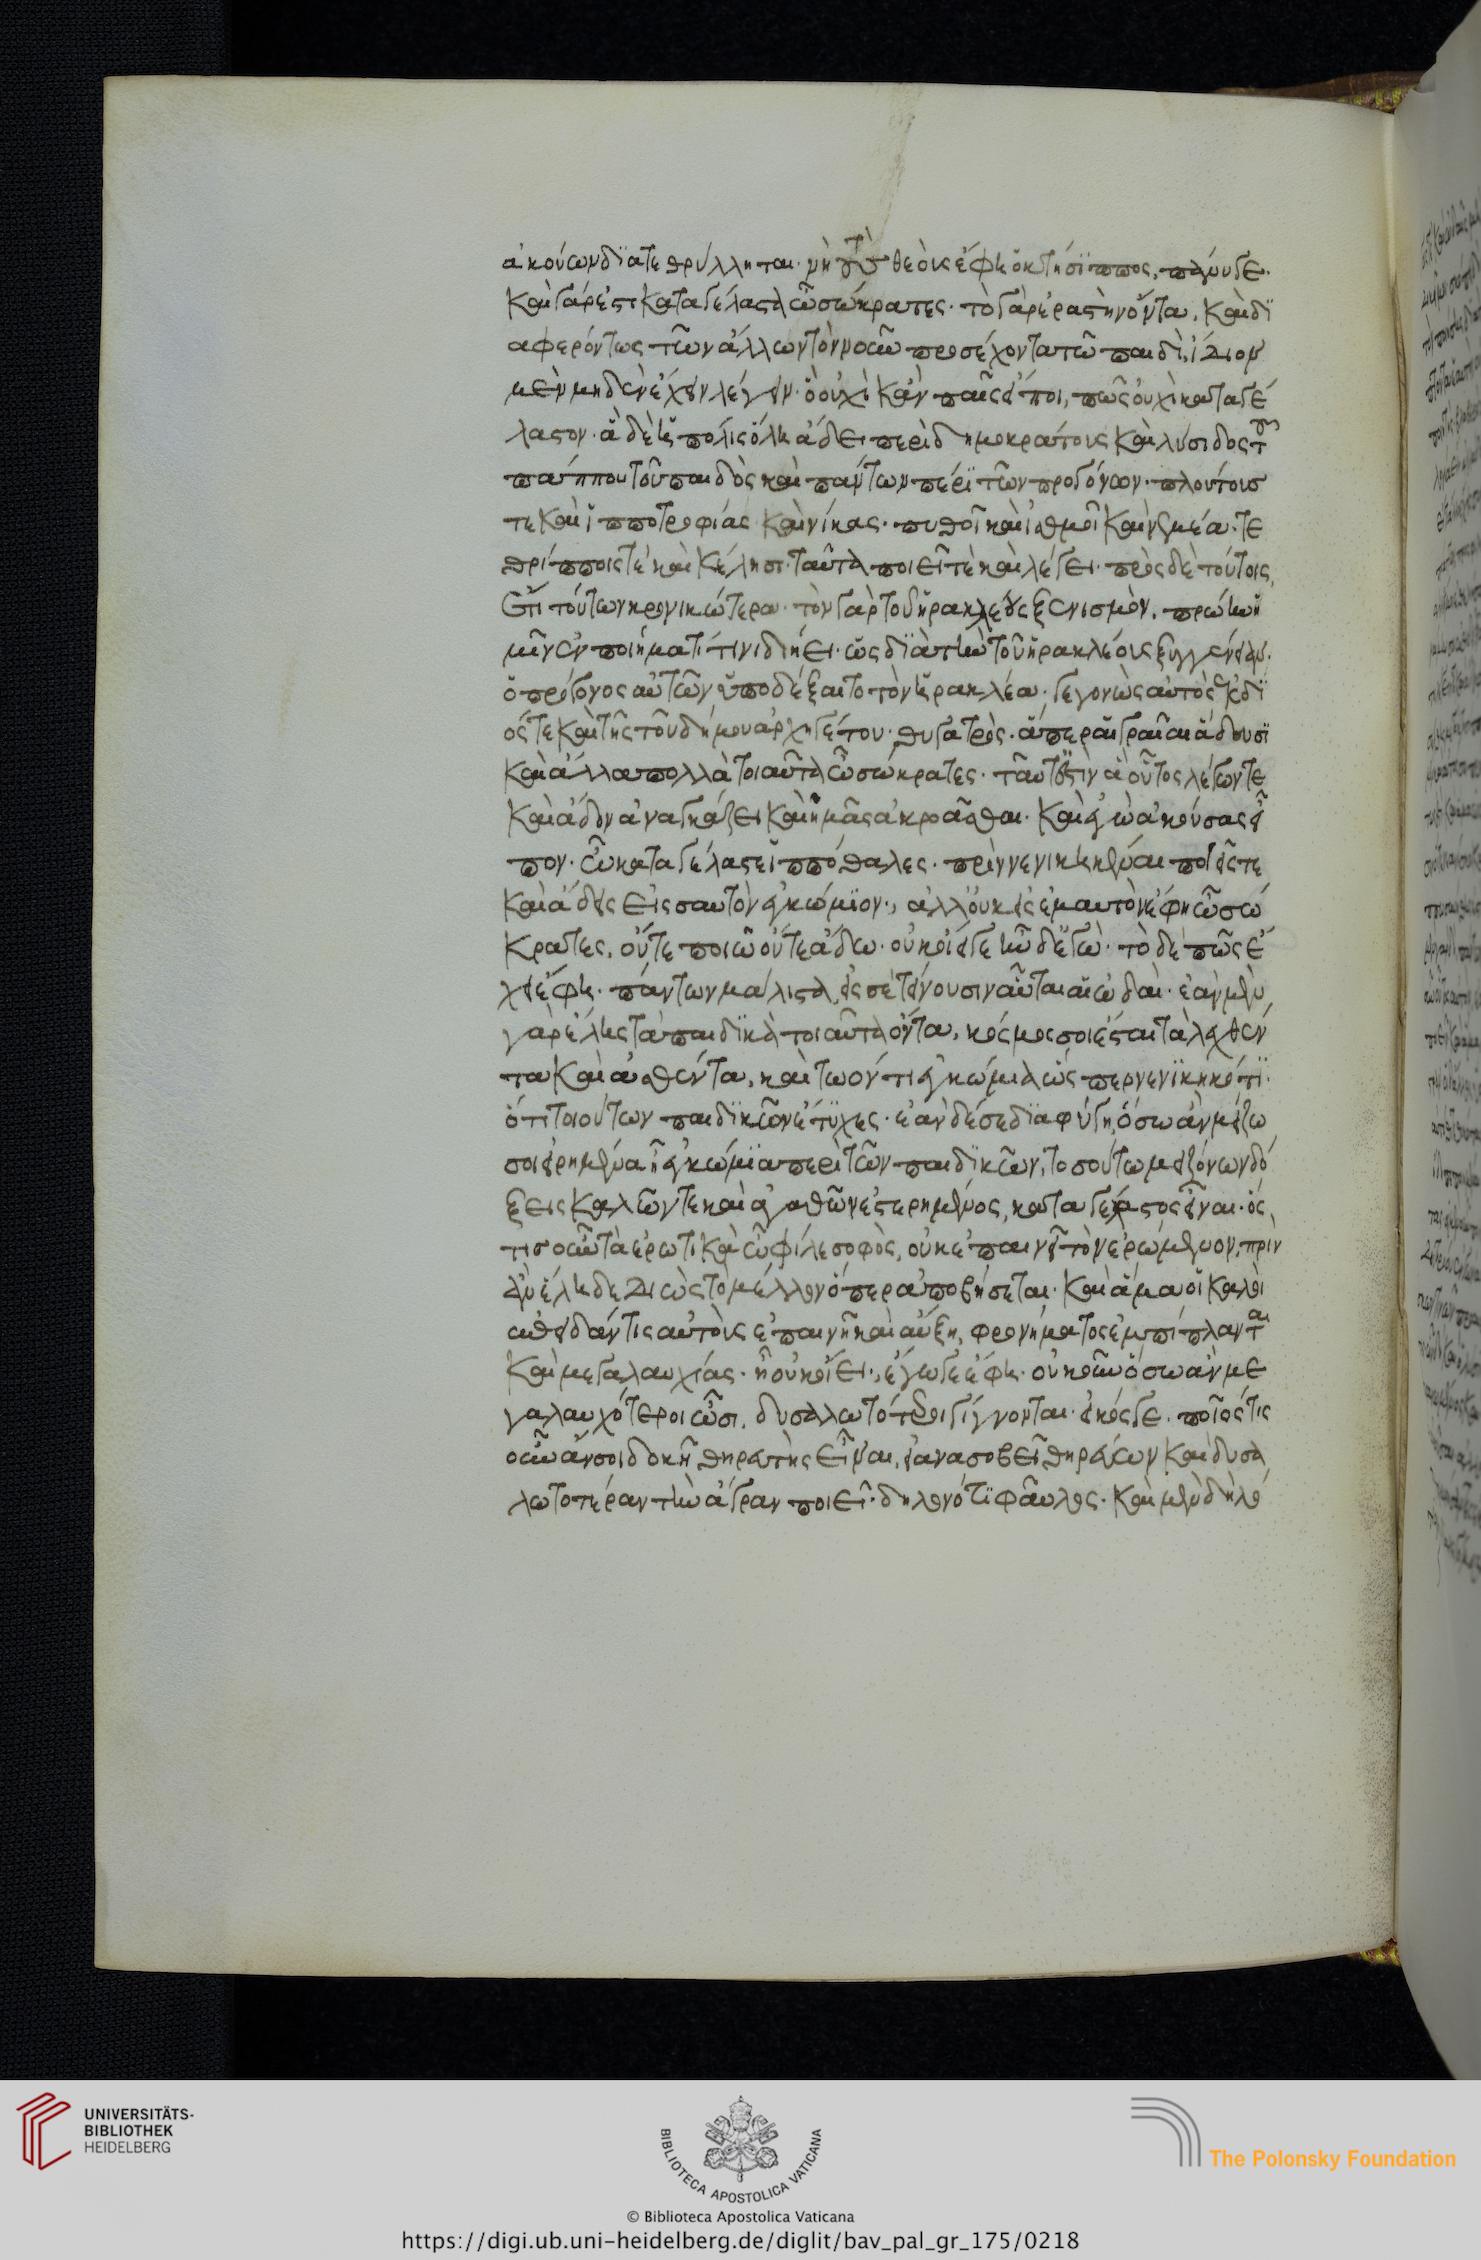 ἀκούων διατεθρύλληται. νὴ τοὺς θεοὺς ἔφη ὁ κτήσιππος, πάνυ γε.
καὶ γάρ ἐστι καταγέλαστα ὦ σώκρατες. τὸ γὰρ ἐραστὴν ὄντα, καὶ δι
αφερόντως τῶν ἄλλων τὸν νοῦν προσέχοντα τῶ παιδὶ, ἴδιον
μὲν μηδὲν ἔχειν λέγειν. ὃ οὐχὶ κἂν παῖς εἴποι, πῶς οὐχὶ καταγέ
λαστον. ἃ δὲ ἡ πόλις ὅλη ἄδει περὶ δημοκράτους καὶ λύσιδος τοῦ
πάππου τοῦ παιδὸς καὶ πάντων πέρι τῶν προγόνων. πλούτους
τε καὶ ἱπποτροφίας καὶ νίκας. πυθοῖ καὶ ἰσθμοῖ καὶ νεμέα. τε
θρίπποις τὲ καὶ κέλησι. ταῦτα ποιεῖ τὲ καὶ λέγει. πρὸς δὲ τούτοις,
ἔτι τούτων κρονικώτερα. τὸν γὰρ τοῦ ἡρακλέους ξενισμὸν. πρώην ἡ
μῖν ἐν ποιήματί τινι διήει. ὡς διὰ τὴν τοῦ ἡρακλέους ξυγγένειαν.
ὁ πρόγονος αὐτῶν ὑποδέξαιτο τὸν ἡρακλέα. γεγονὼς αὐτὸς ἐκ δι
ός τε καὶ τῆς τοῦ δήμου ἀρχηγέτου θυγατρὸς. ἅπερ αἱ γραῖαι ἄδουσι
καὶ ἄλλα πολλὰ τοιαῦτα ὦ σώκρατες. ταῦτ' ἐστὶν ἃ οὗτος λέγων τε
καὶ ἄδων ἀναγκάζει καὶ ἡμᾶς ἀκροᾶσθαι. καὶ ἐγὼ ἀκούσας εἶ
πον. ὦ καταγέλαστε ἱππόθαλες. πρὶν νενικηκέναι ποιεῖς τε
καὶ ἄδεις εἰς σαυτὸν ἐγκώμιον., ἀλλ' οὐκ εἰς ἐμαυτὸν ἔφη ὦ σώ
κρατες. οὔτε ποιῶ οὔτε ἄδω. οὐκ οἴει γε ἦν δ' ἐγώ. τὸ δὲ πῶς ἔ
χει ἔφη. πάντων μάλιστα, εἰς σὲ τείνουσιν αὗται αἱ ὠδαί. ἐὰν μὲν
γὰρ ἕλης τὰ παιδικὰ τοιαῦτα ὄντα, κόσμος σοι ἔσται τὰ λεχθέν
τα καὶ ἀσθέντα. καὶ τῶ ὄντι ἐγκώμια ὥς περ νενικηκότι.
ὅτι τοιούτων παιδικῶν ἔτυχες. ἐὰν δέ σε διαφύγη, ὅσω ἂν μείζω
σοι εἰρημένα ἦ ἐγκώμια περὶ τῶν παιδικῶν, τοσούτω μειζόνων δό
ξεις καλῶν τε καὶ ἀγαθῶν ἐστερημένος, καταγέλαστος εἶναι. ὅς
τις οὖν τὰ ἐρωτικὰ ὦ φίλε σοφὸς, οὐκ ἐπαινεῖ τὸν ἐρώμενον. πρὶν
ἂν ἕλη δεδιὼς τὸ μέλλον ὅπερ ἀποβήσεται. καὶ ἅμα οἱ καλοὶ
ἐπειδάν τις αὐτοὺς ἐπαινῆ καὶ αὔξη, φρονήματος ἐμπίπλανται
καὶ μεγαλαυχίας. ἢ οὐκ οἴει., ἔγωγε ἔφη. οὐκοῦν ὅσω ἂν με
γαλαυχότεροι ὦσι, δυσαλωτότεροι γίγνονται. εἰκός γε. ποῖός τις
οὖν ἄν σοι δοκῆ θηρατὴς εἶναι, εἰ ἀνασοβεῖ θηρεύων καὶ δυσα
λωτοτέραν τὴν ἄγραν ποιεῖ. δηλονότι φαῦλος. καὶ μὲν δὴ λό
UNIVERSITÄTS-
BIBLIOTHEK
HEIDELBERG
BIBLIOTECA APOSTOLICA VATICANA
The Polonsky Foundation
© Biblioteca Apostolica Vaticana
https://digi.ub.uni-heidelberg.de/diglit/bav_pal_gr_175/0218